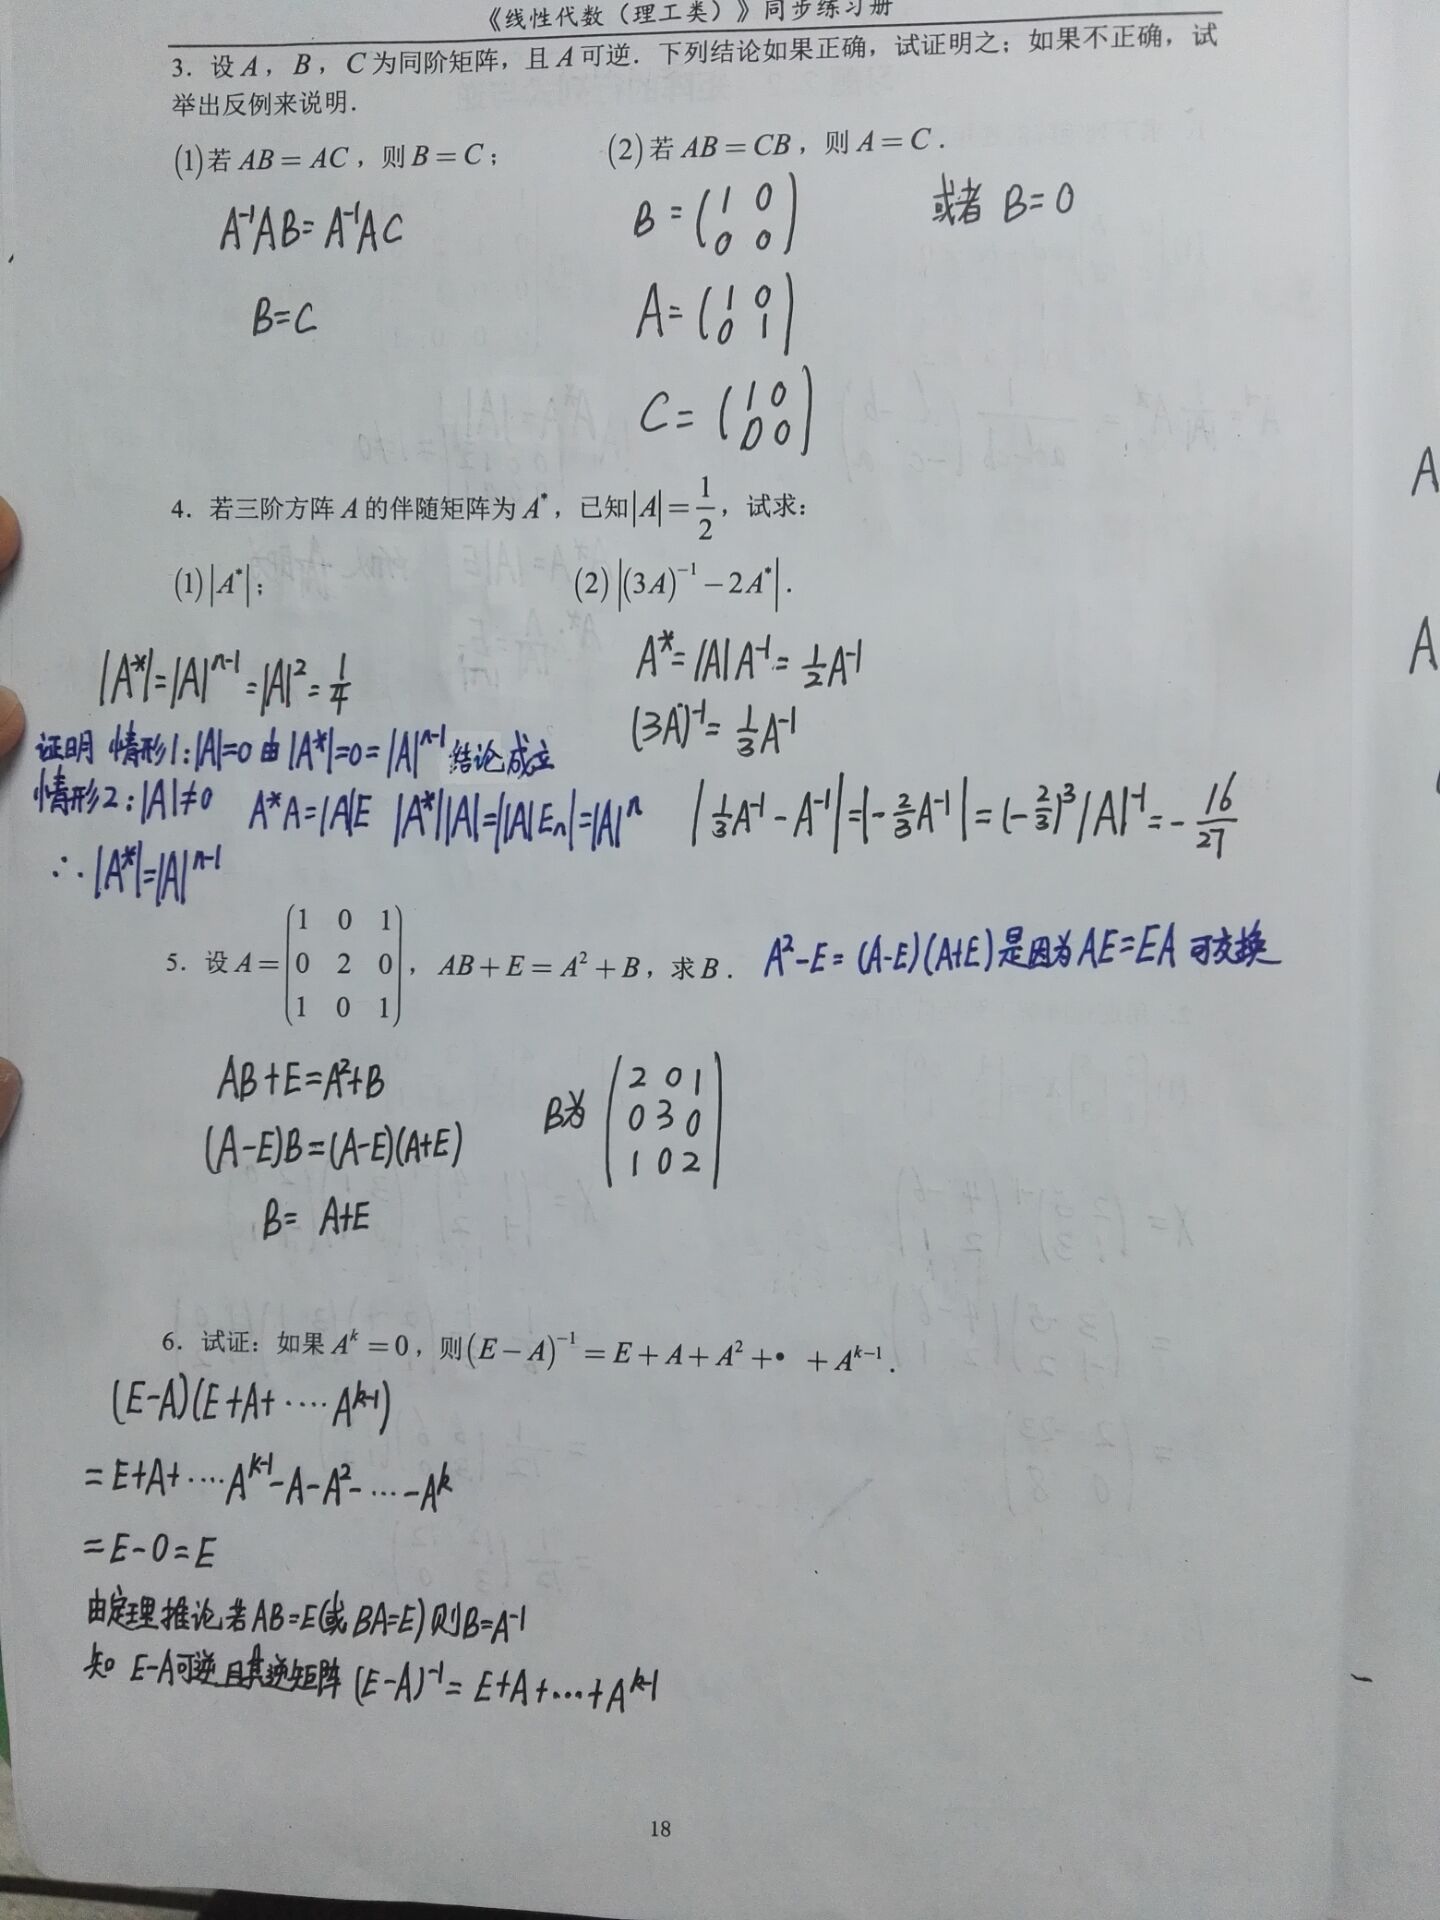 《线性代数（理工类）》同步练习册
3. 设 A，B，C 为同阶矩阵，且 A 可逆．下列结论如果正确，试证明之；如果不正确，试
举出反例来说明．
(1) 若 AB = AC，则 B = C；  (2) 若 AB = CB，则 A = C．
A⁻¹AB = A⁻¹AC
B = C
B = (1 0
0 0)
或者 B = 0
A = (1 0
0 1)
C = (1 0
0 0)
4. 若三阶方阵 A 的伴随矩阵为 A*，已知|A| = 1/2，试求：
(1) |A*|；  (2) |(3A)⁻¹ − 2A*|．
|A*| = |A|ⁿ⁻¹ = |A|² = 1/4
证明 情形1：|A|=0 由 |A*|=0=|A|ⁿ⁻¹ 结论成立
情形2：|A|≠0 A*A=|A|E |A*||A|=||A|Eₙ|=|A|ⁿ
∴ |A*|=|A|ⁿ⁻¹
A* = |A|A⁻¹ = 1/2 A⁻¹
(3A)⁻¹ = 1/3 A⁻¹
|1/3 A⁻¹ − A⁻¹| = |−2/3 A⁻¹| = (−2/3)³ |A|⁻¹ = −16/27
5. 设 A = (1 0 1
0 2 0
1 0 1)，AB + E = A² + B，求 B．
A²−E = (A−E)(A+E) 是因为 AE=EA 可交换
AB + E = A² + B
(A−E)B = (A−E)(A+E)
B = A+E
B为 (2 0 1
0 3 0
1 0 2)
6. 试证：如果 Aᵏ = 0，则 (E − A)⁻¹ = E + A + A² + • + Aᵏ⁻¹．
(E−A)(E+A+····Aᵏ⁻¹)
= E+A+····Aᵏ⁻¹−A−A²−···−Aᵏ
= E−0 = E
由定理推论 若 AB=E(或 BA=E) 则 B=A⁻¹
知 E−A可逆 且其逆矩阵 (E−A)⁻¹ = E+A+···+Aᵏ⁻¹
18